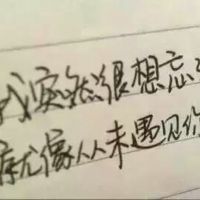 我突然很想忘
就像从未遇见你